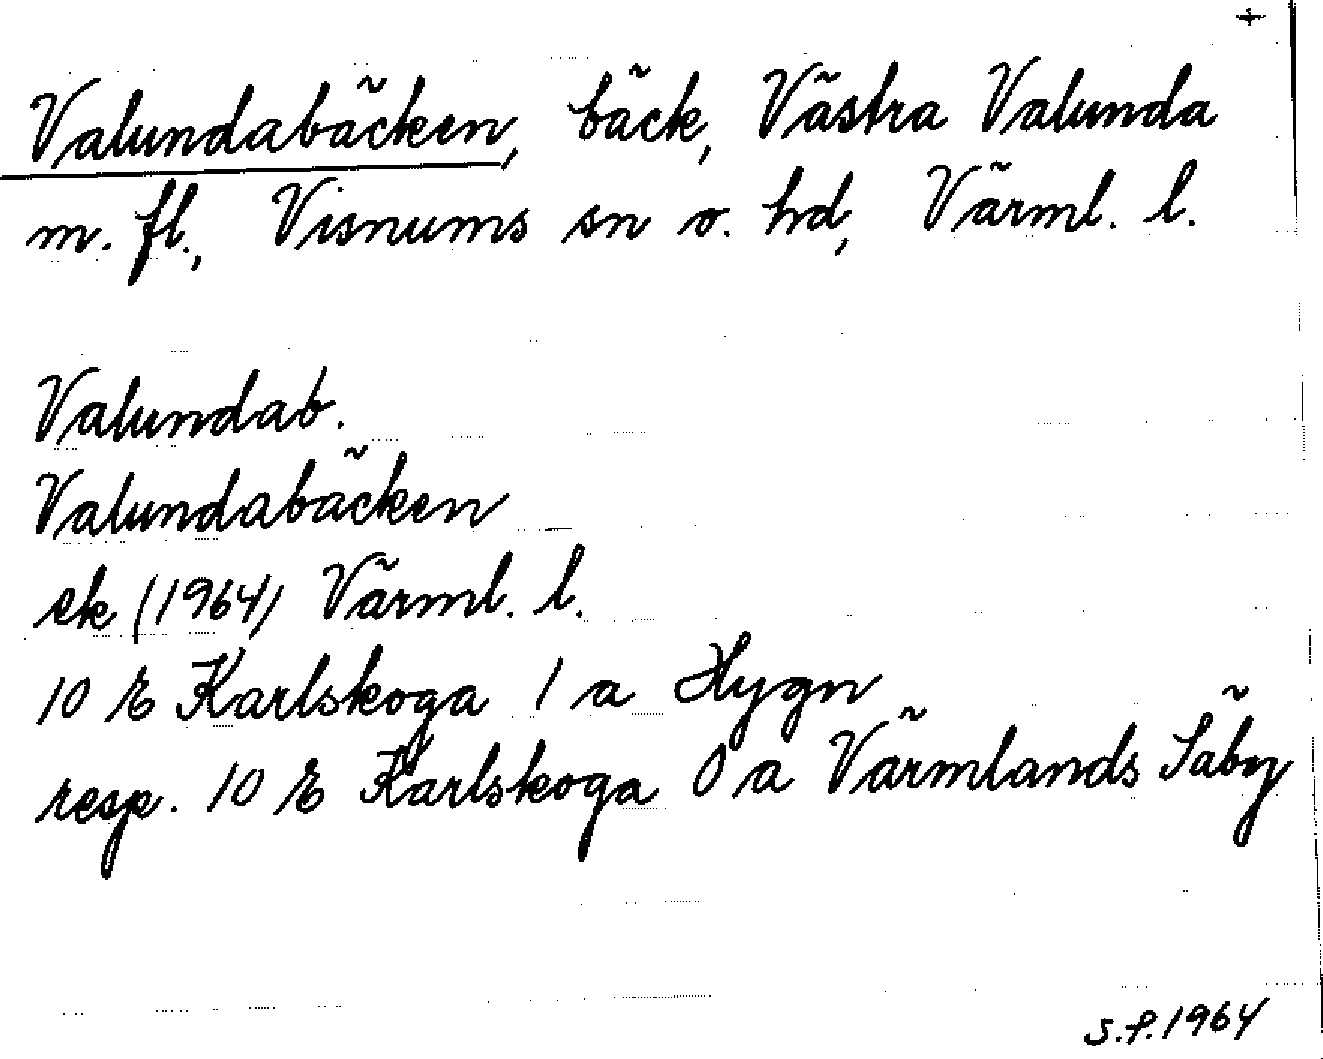 +
Valundabäcken, bäck, Västra Valunda
m. fl., Visnums sn o. hd, Värml. l.
Valundab.
Valundabäcken
ek (1964) Värml. l.
10 E Karlskoga 1 a Hygn
resp. 10 E Karlskoga 0 a Värmlands Säby
S.F. 1964